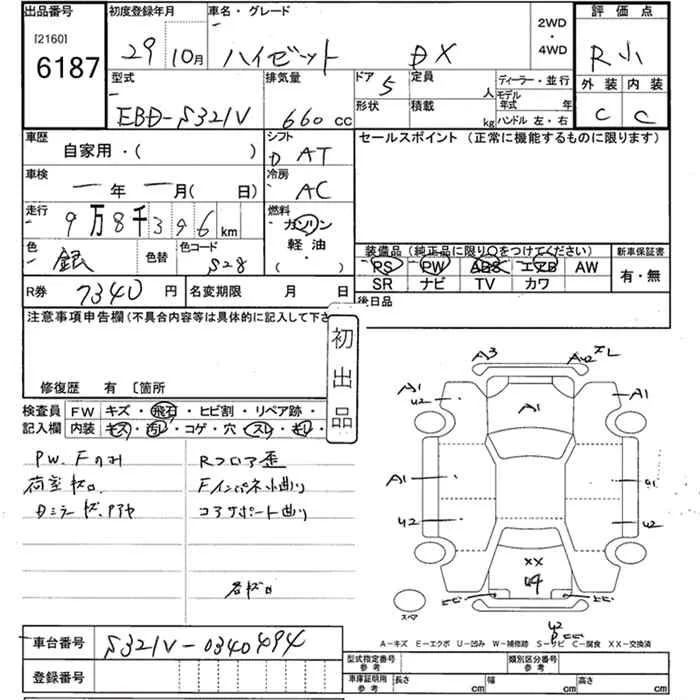 出品番号 初度登録年月 車名・グレード 2WD・4WD 評価点
[2160]
6187
29 10月 ハイゼット DX R小
型式 排気量 ドア 定員 ディーラー・並行 外装 内装
EBD-S321V 660cc 5 人 モデル年式 年 C C
形状 積載 kg ハンドル 左・右
車歴 シフト セールスポイント(正常に機能するものに限ります)
自家用・( ) D AT
車検 冷房
一年 一月( 日) AC
走行 燃料
9万8千396km ガソリン
軽油
( )
色 色替 色コード 装備品(純正品に限り○をつけてください) 新車保証書
銀 S28 PS PW ABS エアB AW 有・無
SR ナビ TV カワ
R券 7340円 名変期限 月 日 後日品
注意事項申告欄(不具合内容等は具体的に記入して下さ
初出品
修復歴 有 〔箇所
検査員 FW キズ・飛石・ヒビ割・リペア跡・
記入欄 内装 キズ・汚レ・コゲ・穴・スレ・キレ・
PW、Fのみ Rフロア歪
荷室キズ Fインパネ小曲り
Dミラーキズ、アワヤ コアサポート曲り
各キズ
A3 A42 XL
A1 A1 A1
42
A1 a1
42 42
XX
44
スペア
42
A-キズ E-エクボ U-凹み W-補修跡 S-サビ C-腐食 XX-交換済
車台番号 S321V-0340494
型式指定番号 参考 類別区分番号 参考
登録番号 車庫証明用 参考 長さ cm 幅 cm 高さ cm